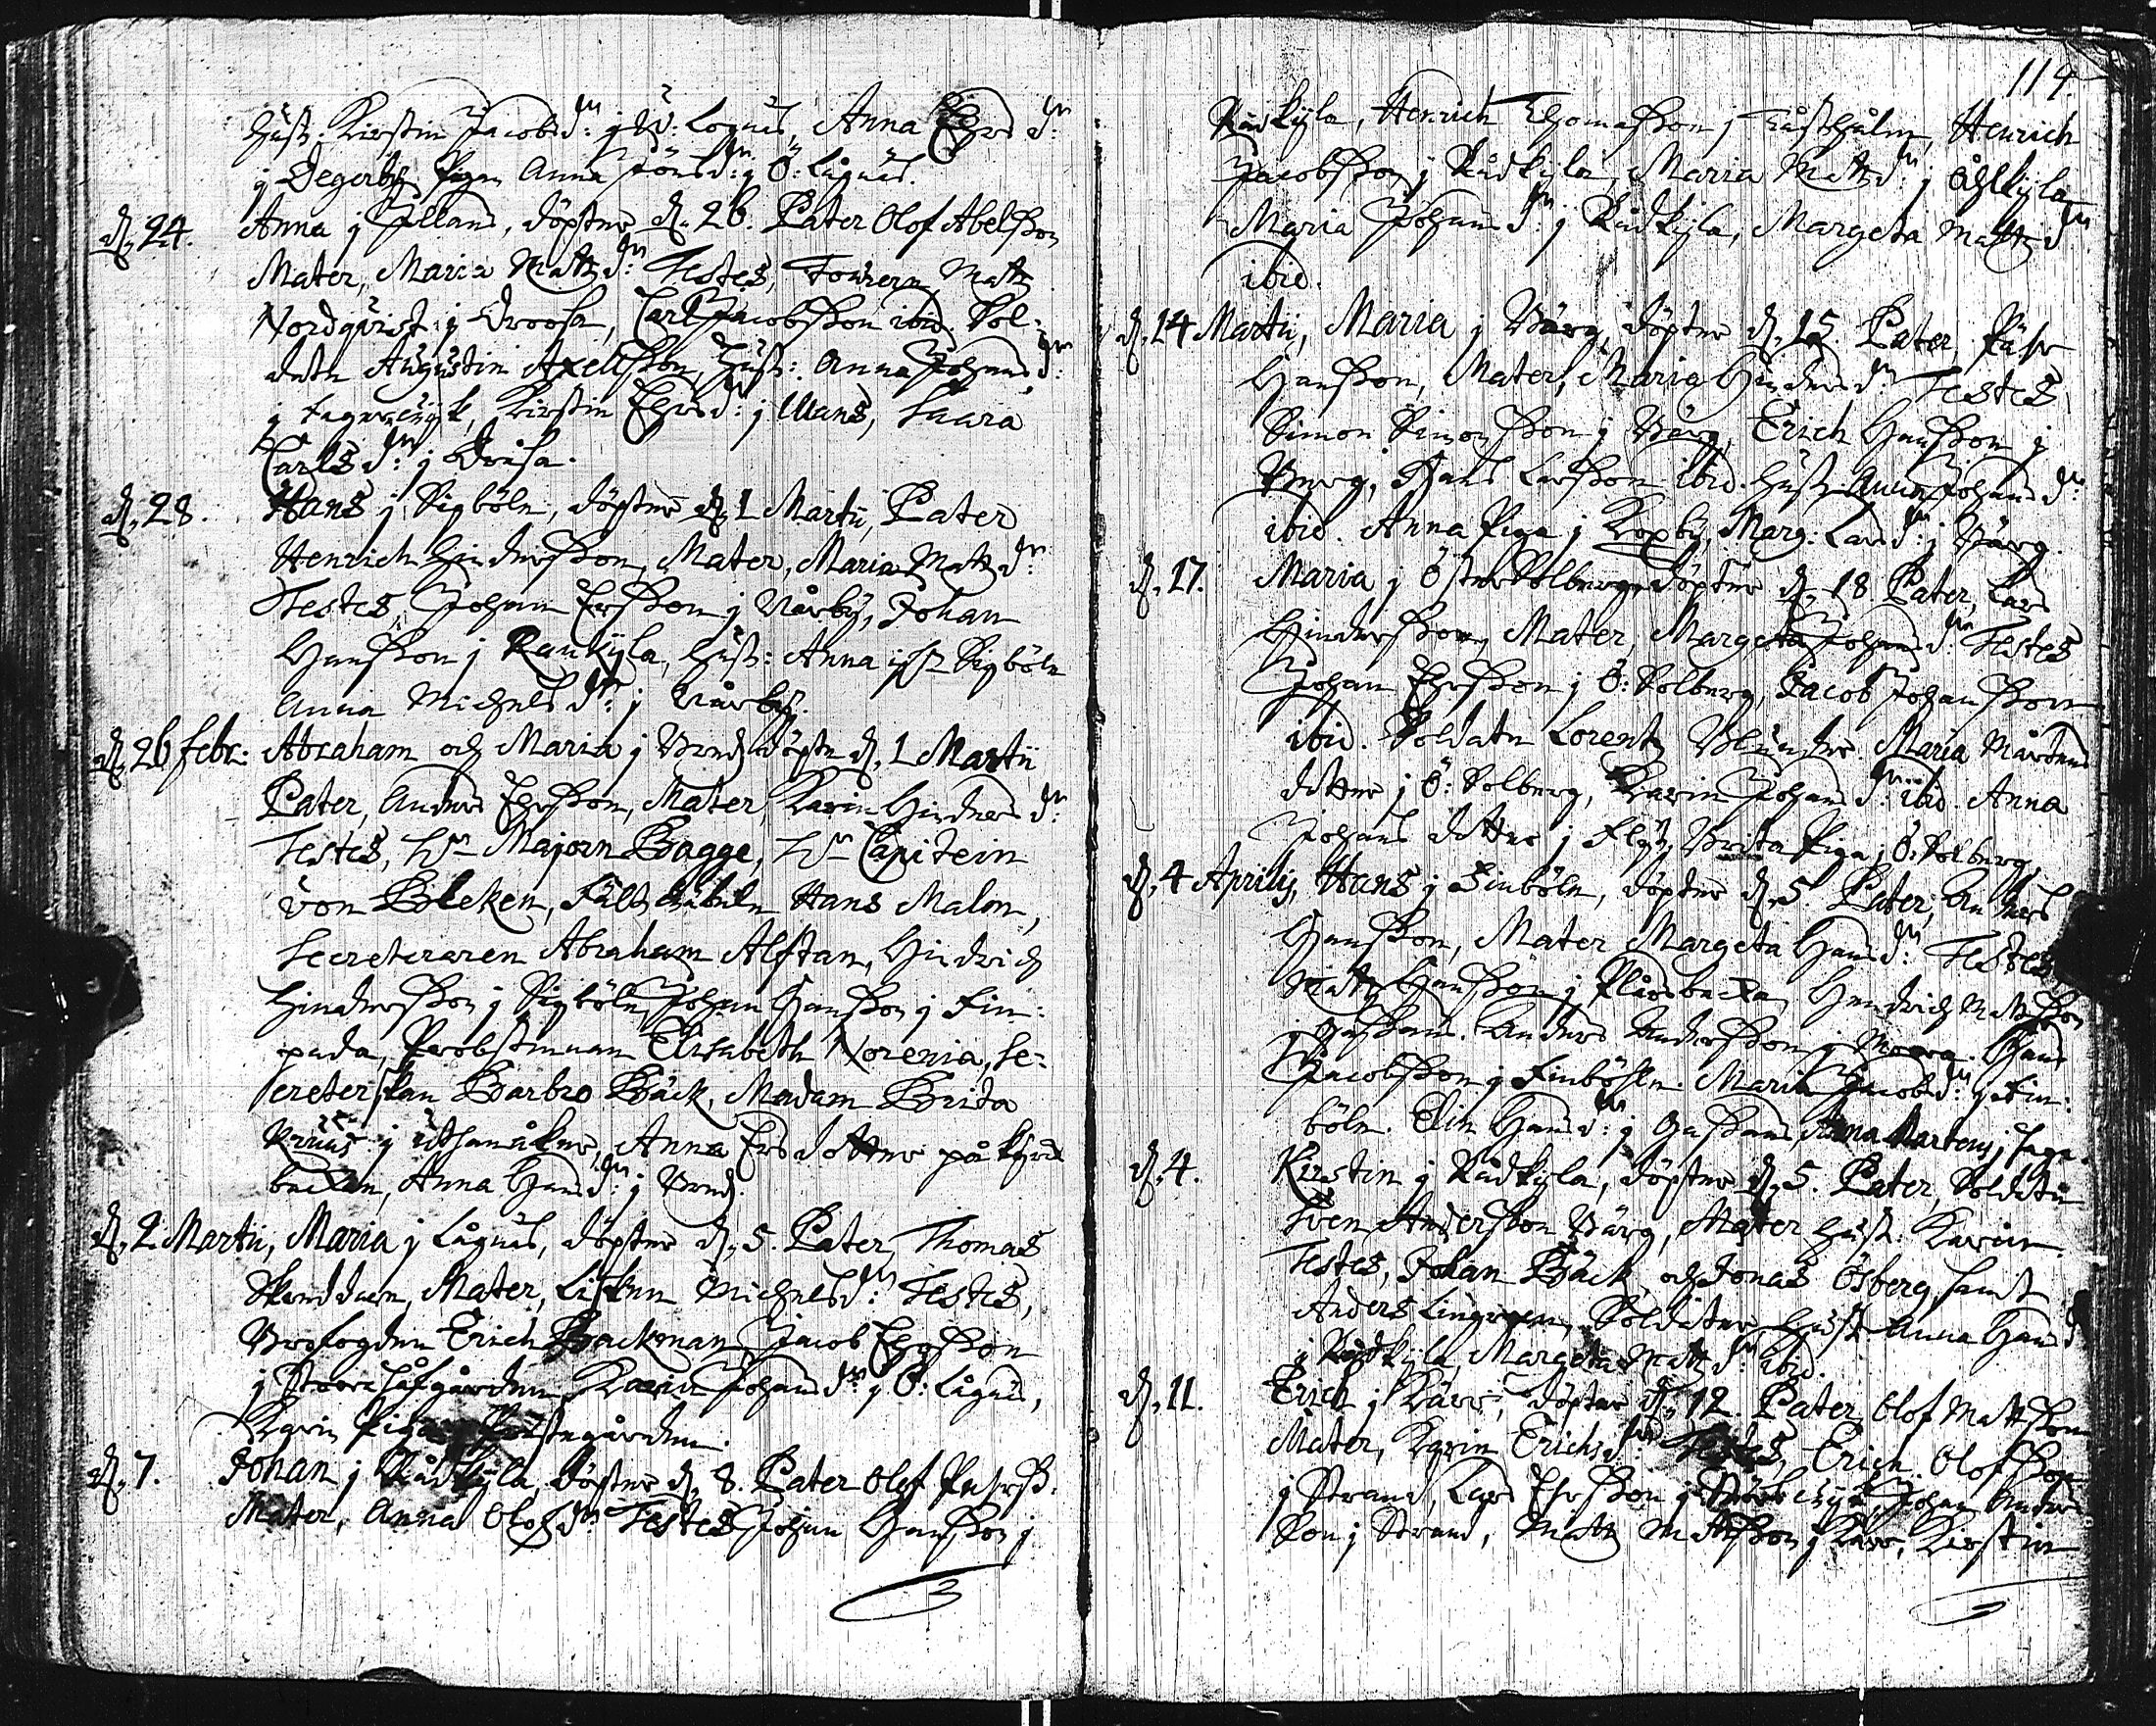 hust: Kirstin Jacobsdr: j W: Lognäs, Anna Ehrsdr:
j Degerby Pigan Anna Jönsdr: j Ö: Lågnäs.
d. 24. Anna j Jllans, döptes d. 26. Pater Olof Abelsson
Mater, Maria Mattzdr: Testes, Matts
Nordqvist j Broosa, Carl Jacobsson ibid. Sol-
daten Augustin Axellsson, Hust: Anna Johansdr:
j Kirstin Ehrsdr: j Saara
Carlsdr: j
d. 28. Hans j Sigböle, döptes d. 1 Martii, Pater
Henrich Hindersson, Mater, Maria Mattzdr:
Testes, Johan Ersson j Vårby, Johan
Hansson j Rankyla, Hust: Anna Sigböle
Anna Michelsdr: j Vårby.
d. 26 febr: Abraham och Maria j döpte d. 1 Martii
Pater, Anders Ehrsson, Mater, Karin Hindersdr:
Testes, Hr Majoren Bagge, Hr Capitein
von Bleken, Hans Malm,
Secreteraren Abraham Alftan, Hindrich
Hindersson j Sigböle, Johan Hansson j Fin-
pada, Probstinnan Elisabeth Norenia, Se-
creterskan Barbro Bäck, Madam Brita
j Anna Ersdotter på kyrck
backan, Anna Hansdr: j
d. 2 Martii, Maria j Lågnäs, döptes d. 5. Pater, Thomas
Mater, Lisken Michelsdr: Testes,
Brofogden Erich Backman, Jacob Ehrsson
j Karin Johansdr: j Ö: Lågnäs,
Karin Piga Prästegården.
d. 7. Johan j Rådkyla, döptes d. 8. Pater Olof Pehrss:
Mater, Anna Olofsdr: Testes Johan Hansson j
114.
Rådkyla, Henrich Thomasson j Henrich
Jacobsson j Rådkyla, Maria Mattsdr: j
Maria Johansdr: j Rådkyla, Margeta Mattzdr
ibid.
d. 14 Martii, Maria j Bärg, döptes d. 15. Pater Påhr
Hansson, Mater, Maria Hindersdr Testes
Simon Simonsson j Bärg, Erich Hansson j
Hans Larsson ibid. Hust: Anna Johansdr:
ibid. Anna Piga j Koxby, Marg: Larsdr: j Bärg.
d. 17. Maria j Öster Solberga döptes d. 18 Pater, Lars
Hindersson, Mater, Margeta Johansdr: Testes
Johan Ehrsson j Ö: Solberg, Jacob Johansson
ibid. Soldaten Lorentz Maria Mårtens
dotter j Ö: Solberg, Karin Johansdr: ibid. Anna
Johans dotter j Flyt, Brita Piga j Ö: Solberg
d. 4 Aprilis, Hans j Finböle, döptes d. 5. Pater, Anders
Hansson, Mater Margeta Hansdr: Testes
Matts Hansson j Hendrich Mattsson
j Anders Andersson j Hans
Jacobsson j Finböhle. Maria Jacobsdr: j Fin-
böle. Elin Hansdr: j Anna Martens j
d. 4. Kirstin j Rådkyla, döptes d. 5. Pater, Soldaten
Sven Andersson Bärg, Mater Hust: Karin.
Testes, Johan Bäck, och Jonas Ösberg, samt
Anders Soldater Hust Anna Hansd
j Rådkyla, Margeta Mattzdr: ibid.
d. 11. Erich j Kärr, döptes d. 12. Pater, Olof Mattsson
Mater, Karin Erichsdr: Testes, Erich Olofsson
j Strand, Lars Ehrsson j Johan Anders
son j Strand, Matts Mattsson j Kärr, Kirstin